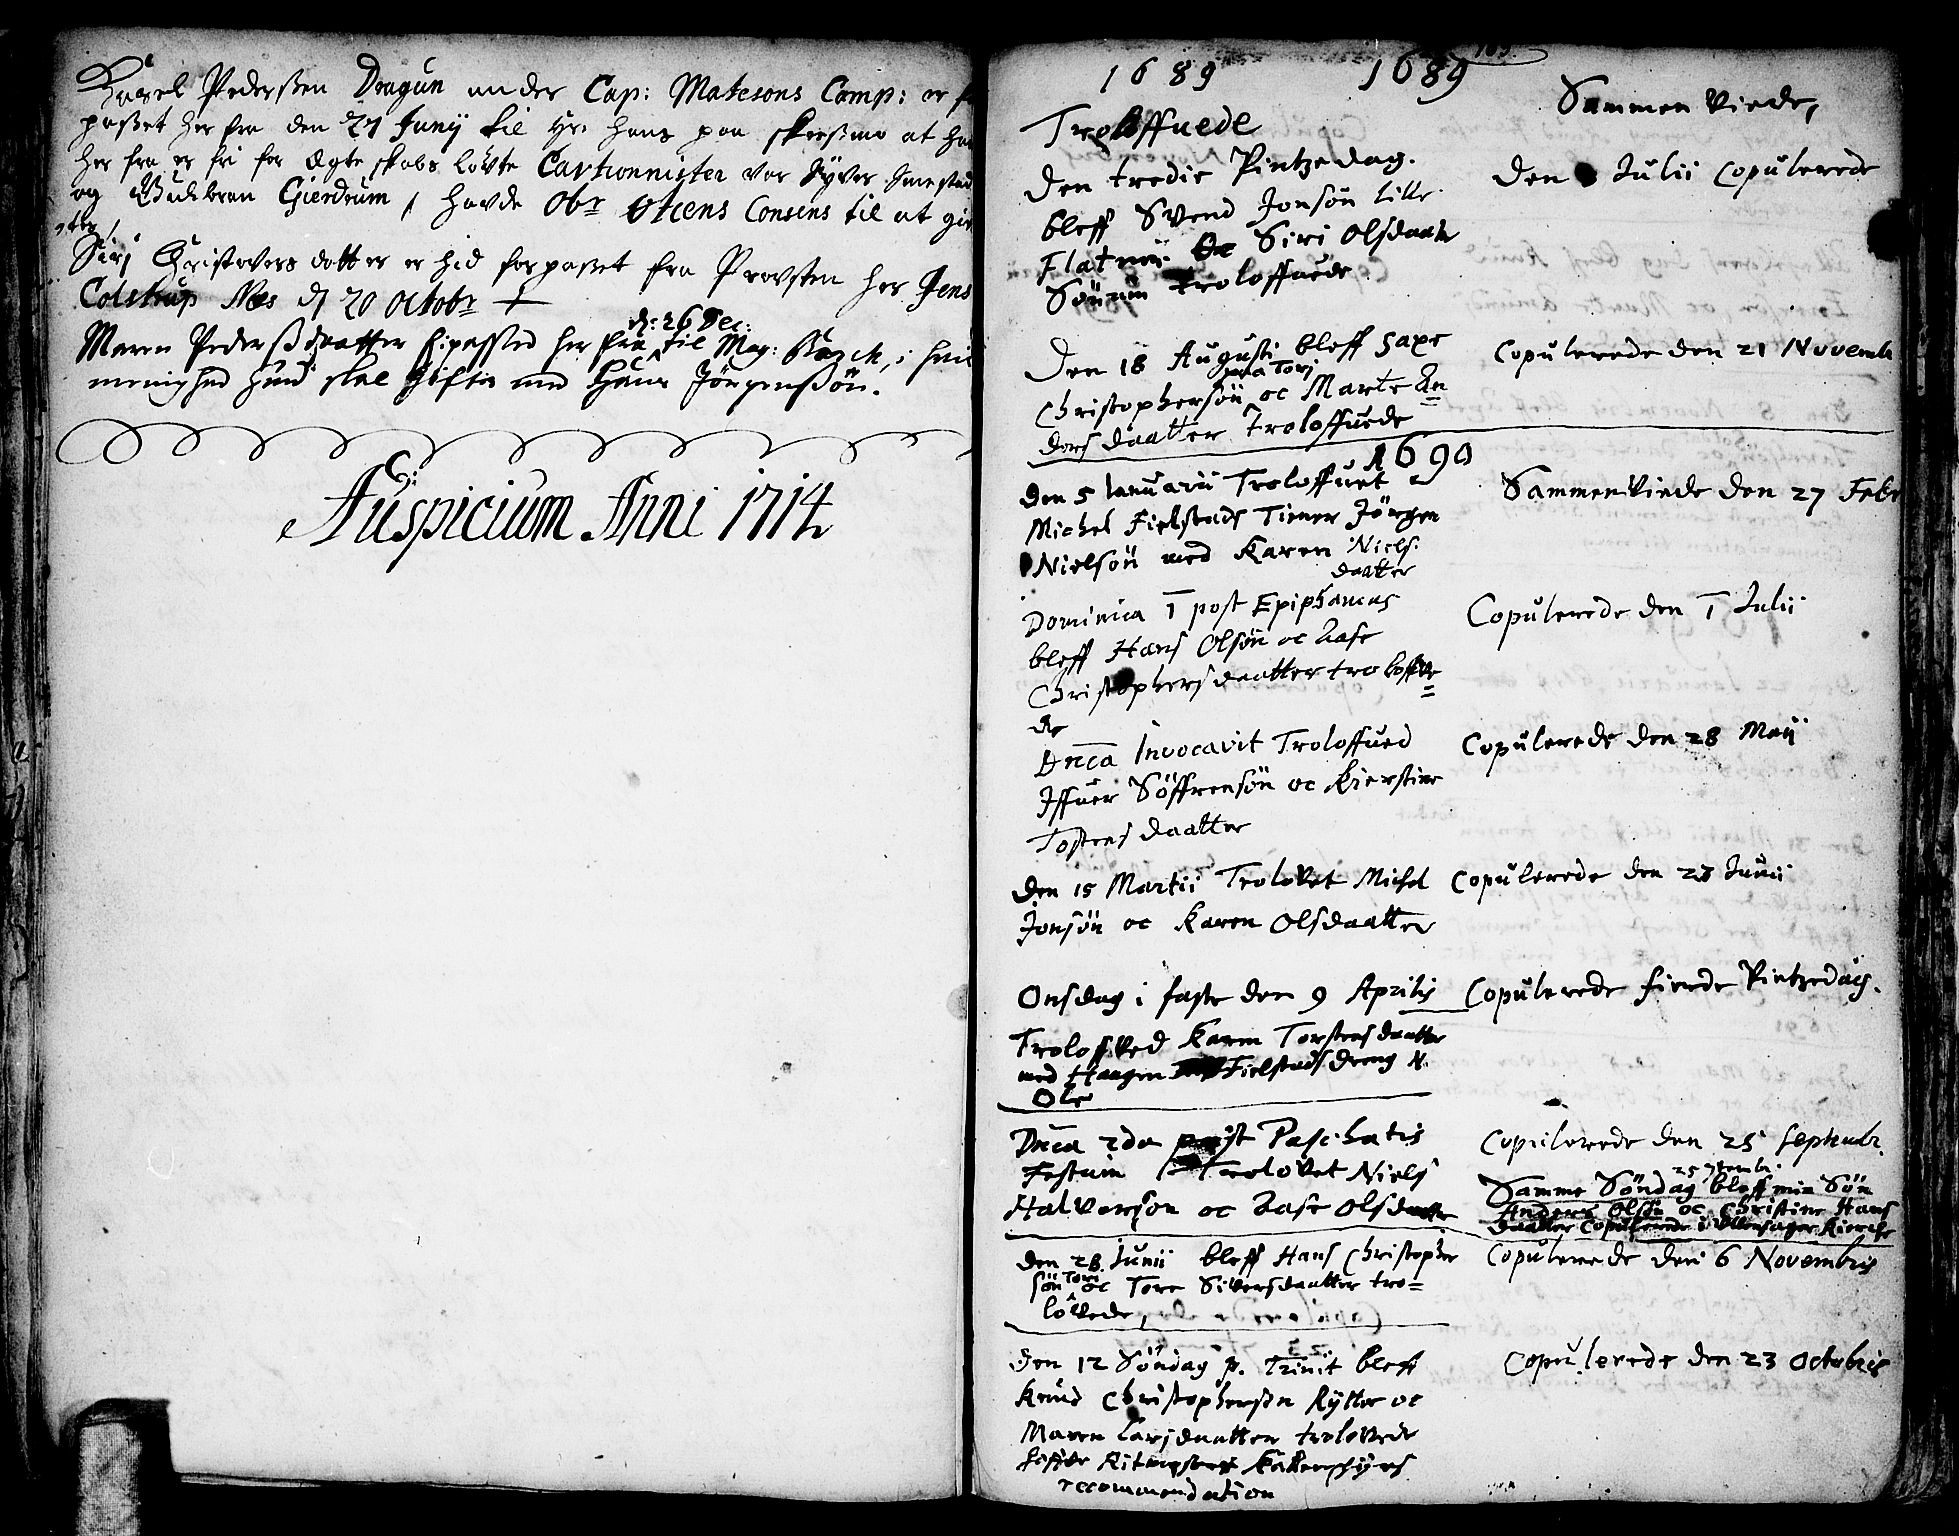 Pedersen Dragun under Cap: Matesons Comp: er
passet her fra den 27 Junij til Hr: Hans paa at
her fra er fri for Egteskabs løvte Cautionnister var Syver Smestad
og Gudbran Gierdrum, havde Obr Consens til at
Siri Christovers datter er hid forpasset fra Provsten her Jens
Colstrup Næs d 20 octobr
d: 26 Dec:
Maren Pederssdaatter her fra til Mag: i
menighed hun skal Giftis med Hans Jörgenssön.
Auspicium Anni 1714
1689 1689
Troloffuede
Sammen Viede,
Den tredie Pintzedag.
bleff Svend Jonsön Lille
Flatnii Oc Siri Olsdaater
troloffuede
Den Julii Copulerede
Den 18 Augusti bleff Saxe
Christophersön oc Marte An=
ders daatter Troloffuede
Copulerede den 21 Novembr
1690
Den 5 Januarii Troloffuet
Michel Fielstads Tiener Jörgen
Nielsön med Karen Niels
daatter
Sammenviede den 27 Febr
Dominica 1 post Epiphanias
bleff Hans Olsön oc Aase
Christophers daatter troloffve=
de
Copulerede den 1 Julii
Dnica Invocavit Troloffued
Iffuer Söffrensön oc Kierstine
Tostens daatter
Copulerede den 28 Maii
Den 15 Martii Trolovet Michel
Jonsön oc Karen Olsdaatter
Copulerede den 27 Junii
Onsdag i faste den 9 Aprilis
Troloffved Karen Torstens daatter
med Haagen Fielstads dreng N.
Ole
Copulerede fierde Pintzedag.
Dnica 2da post Paschatis
Festum Trolovet Niels
Halversön oc Aase Olsdaatter
Copulerede den 25 Septembr.
25 7tembr.
Samme Söndag bleff min Sön
Anders Olsön oc Christine Hans
daatter Copulerede i Ullensager Kiercke
den 28 Junii bleff Hans Christopher
sön Tori oc Tore Siversdaatter tro=
lovede,
Copulerede den 6 Novembris
Den 12 Söndag p. Trinit bleff
Knud Christophersön Rytter oc
Maren Larsdaatter trolovede
effter Ritmester
recommendation
Copulerede den 23 Octobris